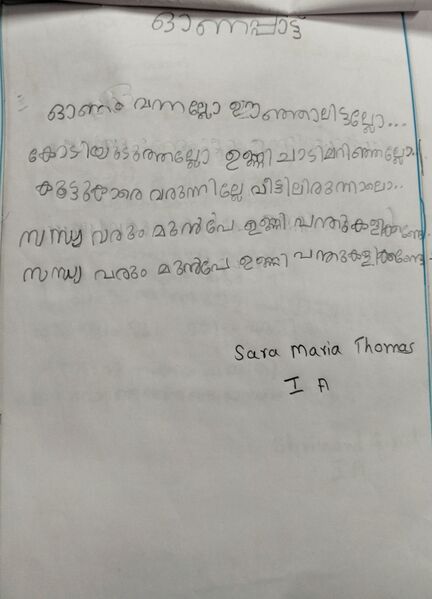 ഓണപ്പാട്ട്
ഓണം വന്നല്ലോ ഊഞ്ഞാലിട്ടല്ലോ...
കോടിയുടുത്തല്ലോ ഉണ്ണി ചാടിമറിഞ്ഞല്ലോ..
കൂട്ടുകാരെ വരുന്നില്ലേ വീട്ടിലിരുന്നാലൊ..
സന്ധ്യ വരും മുൻപേ ഉണ്ണി പന്തുകളിക്കണ്ടേ..
സന്ധ്യ വരും മുൻപേ ഉണ്ണി പന്തുകളിക്കണ്ടേ..
Sara Maria Thomas
I A